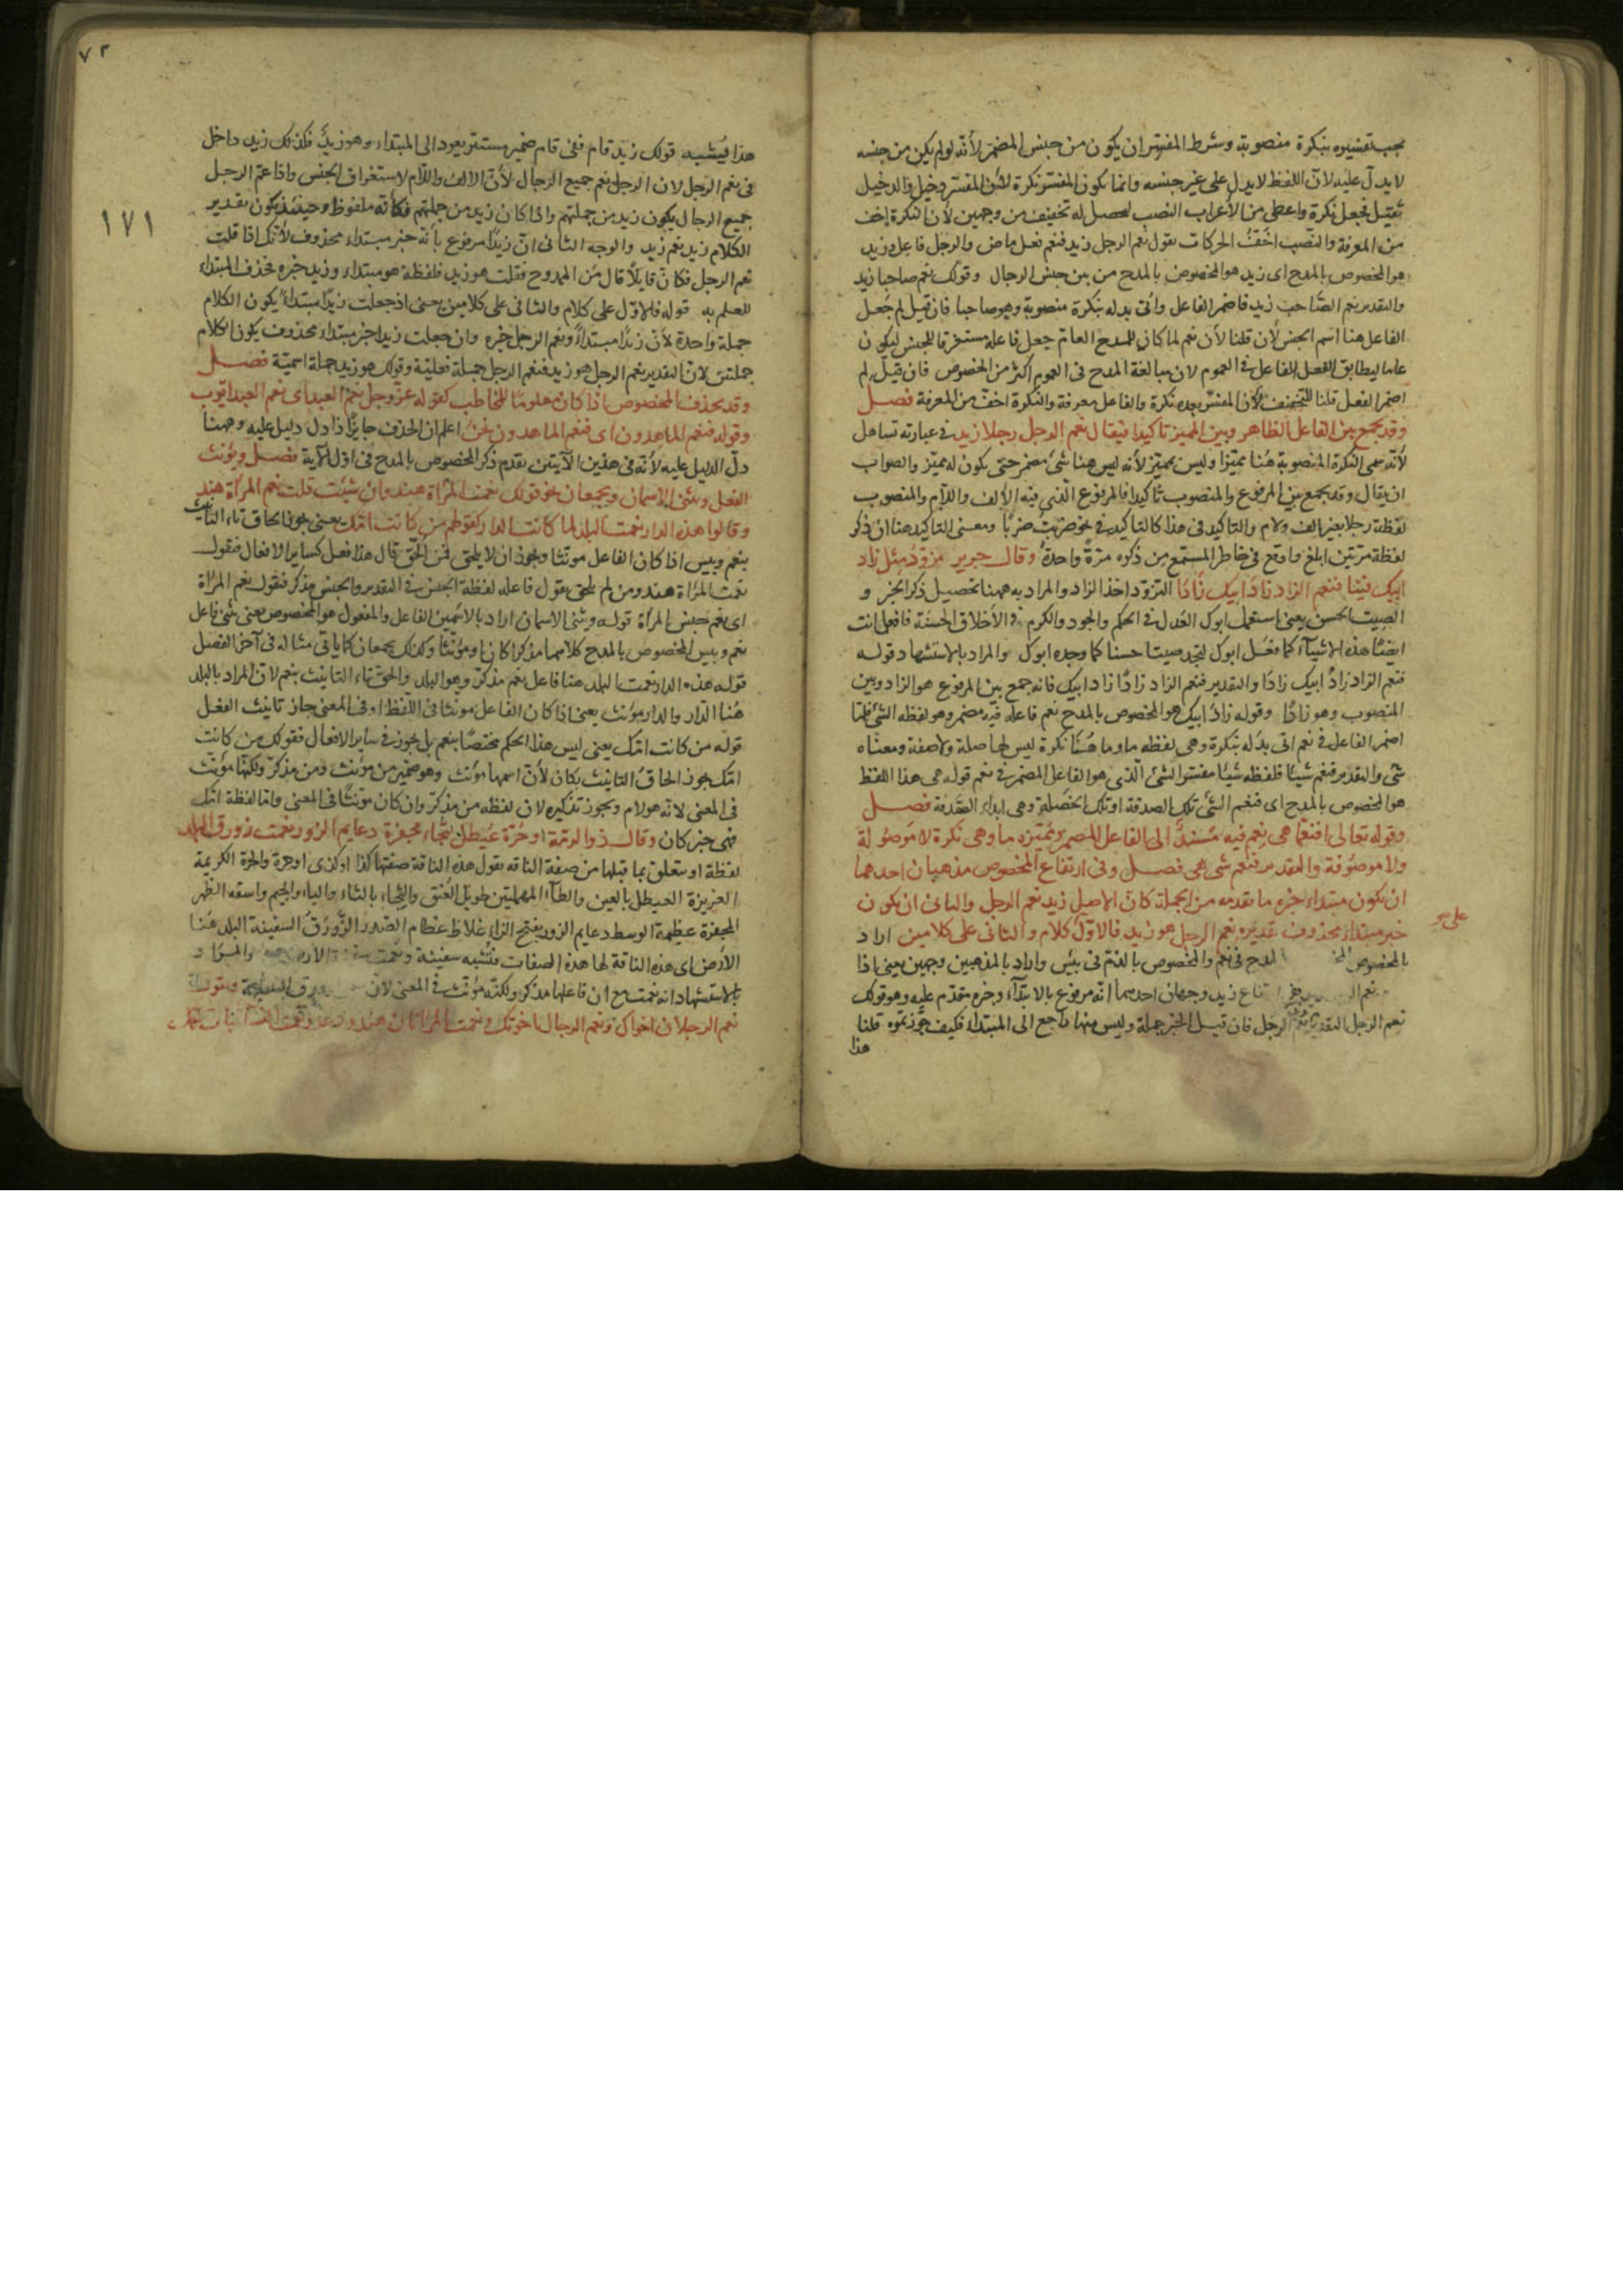 يجب تفسيره بنكرة منصوبة وشرط المفسر ان يكون من جنس المضمر لأنه لو لم يكن من جنسه
لا يدل عليه لان اللفظ لا يدل على غير جنسه وانما يكون المفسر نكرة لأن المفسر دخيل والدخيل
ثقيل فجعل نكرة واعطى من الأعراب النصب ليحصل له تخفيف من وجهين لأن النكرة اخف
من المعرفة والنصب اخف الحركات تقول نعم الرجل زيد فنعم فعل ماض والرجل فاعل وزيد
هو المخصوص بالمدح اى زيد هو المخصوص بالمدح من بين جنس الرجال وقولك نعم صاحبا زيد
والتقدير نعم الصاحب زيد فاضمر الفاعل واتى بدله بنكرة منصوبة وهو صاحبا فان قيل لم جعل
الفاعل هنا اسم الجنس لأن قلنا لأن نعم لما كان للمدح العام جعل فاعله مستغرقا للجنس ليكون
عاما ليطابق الفعل الفاعل فى العموم لان مبالغة المدح فى العموم اكثر من الخصوص فان قيل لم
اضمر الفعل قلنا للتخفيف لأن المفسر بعده نكرة والفاعل معرفة والنكرة اخف من المعرفة فصل
وقد يجمع بين الفاعل الظاهر وبين المميز تاكيدا فيقال نعم الرجل رجلا زيد فى عبارته تساهل
لأنه سمى النكرة المنصوبة هنا مميزا وليس بمميز لأنه ليس هنا شئ مضمر حتى يكون له مميز والصواب
ان يقال وقد يجمع بين المرفوع والمنصوب تاكيدا فالمرفوع الذى فيه الألف واللام والمنصوب
لفظة رجلا بغير الف ولام والتاكيد فى هذا كالتاكيد فى نحو ضربت ضربا ومعنى التاكيد هنا ان ذكر
لفظة مرتين ابلغ واوقع فى خاطر المستمع من ذكره مرة واحدة وقال جرير تزود مثل زاد
ابيك فينا فنعم الزاد زاد ابيك زادا التزود اخذ الزاد والمراد به ههنا تحصيل ذكر الخير و
الصيت الحسن يعنى استعمل ابوك العدل فى الحكم والجود والكرم فى الأخلاق الحسنة فافعل انت
ايضا هذه الاشياء كما فعل ابوك لتجد صيتا حسنا كما وجده ابوك والمراد بالاستشهاد قوله
فنعم الزاد زاد ابيك زادا والتقدير فنعم الزاد زادا زاد ابيك فانه جمع بين المرفوع هو الزاد وبين
المنصوب وهو زادا وقوله زاد ابيك هو المخصوص بالمدح نعم فاعله فيه مضمر وهو لفظه الشئ فلما
اضمر الفاعل فى نعم اتى بدله بنكرة وهى لفظه ما وما هنا نكرة ليس لها صلة ولا صفة ومعناه
شئ والتقدير فنعم شيئا فلفظه شيئا مفسر الشئ الذى هو الفاعل المضمر فى نعم قوله هى هذا اللفظ
هو المخصوص بالمدح اى فنعم الشئ تلك الصدقة او تلك الخصلة وهى ابداء الصدقة فصل
وقوله تعالى فنعما هى نعم فيه مسند الى الفاعل المضمر ومميزه ما وهى نكرة لا موصولة
ولا موصوفة والتقدير فنعم شئ هى فصل وفى ارتفاع المخصوص مذهبان احدهما
ان يكون مبتداء خبره ما تقدمه من الجملة كان الاصل زيد نعم الرجل والثانى ان يكون
خبر مبتداء محذوف تقديره نعم الرجل هو زيد فالاول كلام والثانى على كلامين اراد
بالمخصوص المدح فى نعم والمخصوص بالذم فى بئس واراد بالمذهبين وجهين يعنى اذا
نعم زيد وجهان احدهما انه مرفوع بالابتداء وخبره متقدم عليه وهو قولك
نعم الرجل التقدير نعم الرجل فان قيل الخبر جملة وليس منها راجع الى المبتداء فكيف جوزتموه قلنا
هذا
على هو
٧٢
١٧١
هذا يشبه قولك زيد قام ففى قام ضمير مستتر يعود الى المبتداء وهو زيد فكذلك زيد داخل
فى نعم الرجل لان الرجل نعم جميع الرجال لأن الالف واللام لاستغراق الجنس واذا عم الرجل
جميع الرجال يكون زيد من جملتهم واذا كان زيد من جملتهم فكأنه ملفوظ وحينئذ يكون تقدير
الكلام زيد نعم زيد والوجه الثانى ان زيدا مرفوع بأنه خبر مبتداء محذوف لأنك اذا قلت
نعم الرجل فكان قايلا قال من الممدوح فقلت هو زيد فلفظة هو مبتداء وزيد خبره فحذف المبتداء
للعلم به قوله فالاول على كلام والثانى على كلامين يعنى اذ جعلت زيدا مبتداء يكون الكلام
جملة واحدة لأن زيدا مبتداء ونعم الرجل خبره وان جعلت زيدا خبر مبتداء محذوف يكون الكلام
جملتين لان التقدير نعم الرجل هو زيد فنعم الرجل جملة فعلية وقولك هو زيد جملة اسمية فصل
وقد يحذف المخصوص اذا كان معلوما للمخاطب كقوله عز وجل نعم العبد اى نعم العبد ايوب
وقوله فنعم الماهدون اى فنعم الماهدون نحن اعلم ان الحذف جايز اذا دل دليل عليه وههنا
دل الدليل عليه لأنه فى هذين الآيتين تقدم ذكر المخصوص بالمدح فى اول الآية فصل ويؤنث
الفعل ويثنى الاسمان ويجمعان نحو قولك نعمت المرأة هند وان شئت قلت نعم المرأة هند
وقالوا هذه الدار نعمت البلد لما كانت البلد الدار كقولهم من كانت امك يعنى يجوز الحاق تاء التانيث
بنعم وبيس اذا كان الفاعل مونثا ويجوز ان لا يلحق فمن الحق قال هذا فعل كساير الافعال فنقول
نعمت المرأة هند ومن لم يلحق يقول فاعله لفظة الجنس فى التقدير والجنس مذكر فنقول نعم المرأة
اى نعم جنس المرأة قوله ويثنى الاسمان اراد بالاسمين الفاعل والمفعول هو المخصوص يعنى يثنى فاعل
نعم وبيس المخصوص بالمدح كلاهما مذكرا كان او مؤنثا وكذلك يجمعان كما ياتى مثاله فى آخر الفصل
قوله هذه الدار نعمت البلد هنا فاعل نعم مذكر وهو البلد والحق تاء التانيث بنعم لان المراد بالبلد
هنا الدار والدار مونث يعنى اذا كان الفاعل مونثا فى اللفظ او فى المعنى جاز تانيث الفعل
قوله من كانت امك يعنى ليس هذا الحكم مختصا بنعم بل يجوز فى ساير الافعال فقولك من كانت
امك يجوز الحاق التانيث بكان لأن اسمها مؤنث وهو ضمير من مؤنث ومن مذكر ولكنها مؤنث
فى المعنى لانه هو الام ويجوز تذكيره لان لفظه من مذكر وان كان مونثا فى المعنى واما لفظة امك
فهى خبر كان وقال ذو الرمة او حرة عيطل ثبجاء مجفرة دعايم الزور نعمت زورق البلد
لفظة او يتعلق بما قبلها من صفة الناقه يقول هذه الناقة صفتها كذا او كذى او حرة والحرة الكريمة
العزيزة العيطل بالعين والطاء المهملتين طويل العنق والثبجاء بالثاء والباء والجيم واسعه الظهر
المجفرة عظيمة الوسط دعايم الزور بفتح الزاء غلاظ عظام الصدر الزورق السفينة البلد هنا
الأرض اى هذه الناقة لها هذه الصفات فتشبه سفينة ونعمت سفينة الارض والمراد
بالاستشهاد انه نعمت مع ان فاعلها مذكر ولكنه مؤنث فى المعنى لان وتقول
نعم الرجلان اخواك ونعم الرجال اخوتك ونعمت المرأتان هند ودعد ونعمت النساء بنات عمك